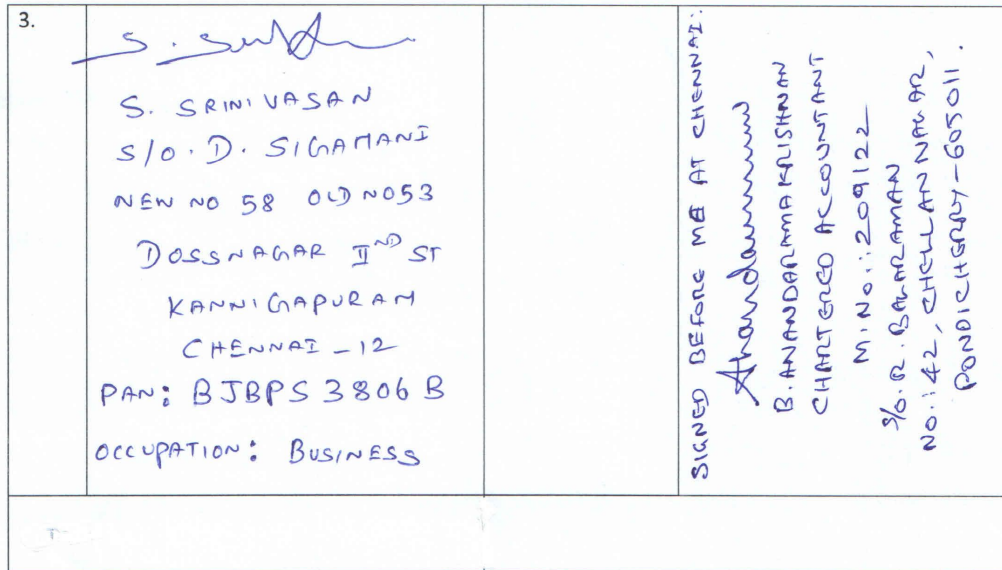 3.
S. SRINIVASAN
S/O. D. SIGAMANI
NEW NO 58 OLD NO53
DOSSNAGAR IIND ST
KANNIGAPURAM
CHENNAI - 12
PAN: BJBPS 3806 B
OCCUPATION: BUSINESS
SIGNED BEFORE ME AT CHENNAI:
B. ANANDARAMAKRISHNAN
CHARTERED ACCOUNTANT
M.No.: 209122
S/o. R. BALARAMAN
NO.: 42, CHELLAN NAGAR,
PONDICHERRY - 605011.